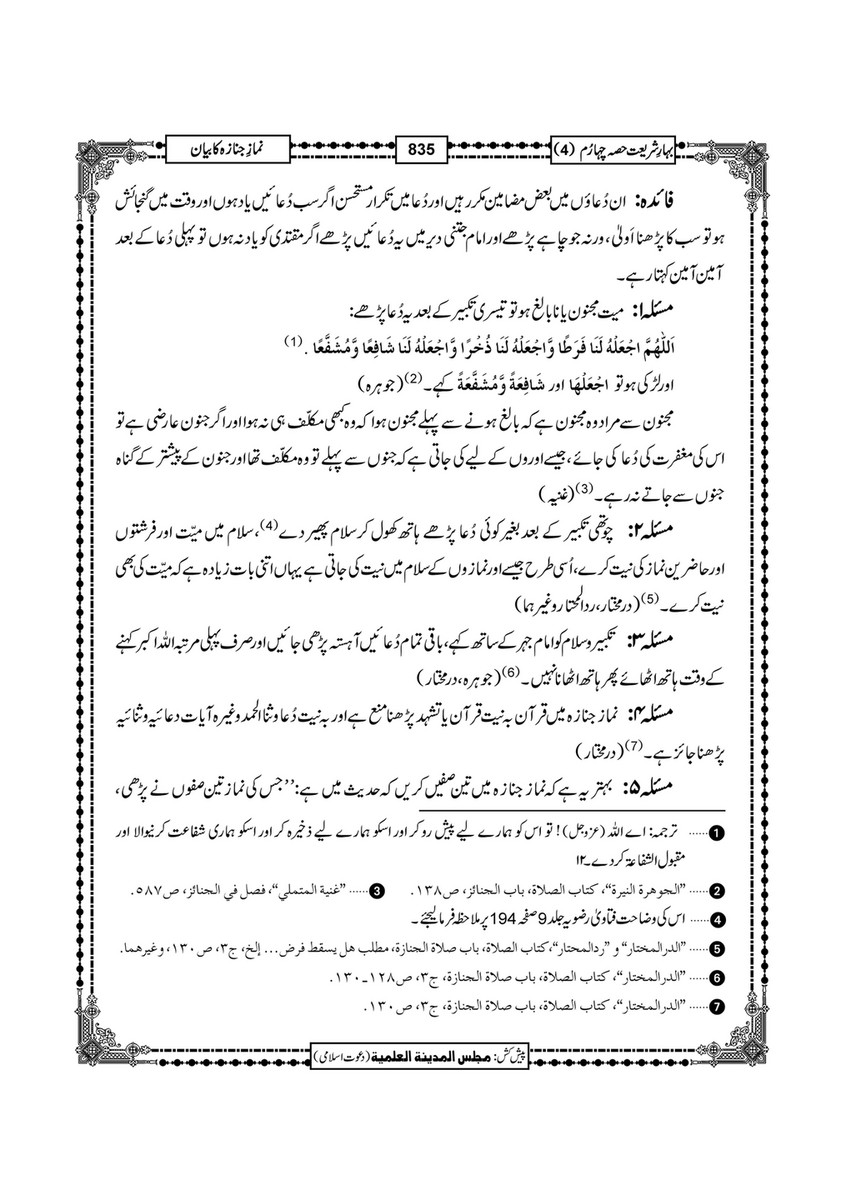 بہارِشریعت حصہ چہارم (4)
835
نمازِ جنازہ کا بیان
فائدہ: ان دُعاؤں میں بعض مضامین مکرر ہیں اور دُعا میں تکرار مستحسن اگر سب دُعائیں یاد ہوں اور وقت میں گنجائش
ہو تو سب کا پڑھنا اَولیٰ، ورنہ جو چاہے پڑھے اور امام جتنی دیر میں یہ دُعائیں پڑھے اگر مقتدی کو یاد نہ ہوں تو پہلی دُعا کے بعد
آمین آمین کہتا رہے۔
مسئلہ ۱: میت مجنون یا نابالغ ہو تو تیسری تکبیر کے بعد یہ دُعا پڑھے:
اَللّٰهُمَّ اجْعَلْهُ لَنَا فَرَطًا وَّاجْعَلْهُ لَنَا ذُخْرًا وَّاجْعَلْهُ لَنَا شَافِعًا وَّمُشَفَّعًا . (1)
اور لڑکی ہو تو اجْعَلْهَا اور شَافِعَةً وَّمُشَفَّعَةً کہے۔ (2) (جوہرہ)
مجنون سے مراد وہ مجنون ہے کہ بالغ ہونے سے پہلے مجنون ہوا کہ وہ کبھی مکلّف ہی نہ ہوا اور اگر جنون عارضی ہے تو
اس کی مغفرت کی دُعا کی جائے، جیسے اوروں کے لیے کی جاتی ہے کہ جنوں سے پہلے تو وہ مکلّف تھا اور جنون کے پیشتر کے گناہ
جنوں سے جاتے نہ رہے۔ (3) (غنیہ)
مسئلہ ۲: چوتھی تکبیر کے بعد بغیر کوئی دُعا پڑھے ہاتھ کھول کر سلام پھیر دے (4)، سلام میں میّت اور فرشتوں
اور حاضرین نماز کی نیت کرے، اُسی طرح جیسے اور نمازوں کے سلام میں نیت کی جاتی ہے یہاں اتنی بات زیادہ ہے کہ میّت کی بھی
نیت کرے۔ (5) (درمختار، ردالمحتار وغیرہما)
مسئلہ ۳: تکبیر و سلام کو امام جہر کے ساتھ کہے، باقی تمام دُعائیں آہستہ پڑھی جائیں اور صرف پہلی مرتبہ اللہ اکبر کہنے
کے وقت ہاتھ اٹھائے پھر ہاتھ اٹھانا نہیں۔ (6) (جوہرہ، درمختار)
مسئلہ ۴: نماز جنازہ میں قرآن بہ نیت قرآن یا تشہد پڑھنا منع ہے اور بہ نیت دُعا و ثنا الحمد وغیرہ آیات دعائیہ و ثنائیہ
پڑھنا جائز ہے۔ (7) (درمختار)
مسئلہ ۵: بہتر یہ ہے کہ نماز جنازہ میں تین صفیں کریں کہ حدیث میں ہے: ’’جس کی نماز تین صفوں نے پڑھی،
1 ...... ترجمہ: اے اللہ (عزوجل)! تو اس کو ہمارے لیے پیش رو کر اور اسکو ہمارے لیے ذخیرہ کر اور اسکو ہماری شفاعت کرنیوالا اور
مقبول الشفاعۃ کر دے۔ ۱۲
2 ...... ”الجوهرة النيرة“، كتاب الصلاة، باب الجنائز، ص١٣٨. 3 ...... ”غنية المتملي“، فصل في الجنائز، ص٥٨٧.
4 ...... اس کی وضاحت فتاویٰ رضویہ جلد 9 صفحہ 194 پر ملاحظہ فرما لیجئے۔
5 ...... ”الدرالمختار“ و ”ردالمحتار“، كتاب الصلاة، باب صلاة الجنازة، مطلب هل يسقط فرض... إلخ، ج٣، ص١٣٠، وغيرهما.
6 ...... ”الدرالمختار“، كتاب الصلاة، باب صلاة الجنازة، ج٣، ص١٢٨-١٣٠.
7 ...... ”الدرالمختار“، كتاب الصلاة، باب صلاة الجنازة، ج٣، ص١٣٠.
پیش کش: مجلس المدینة العلمیة (دعوت اسلامی)